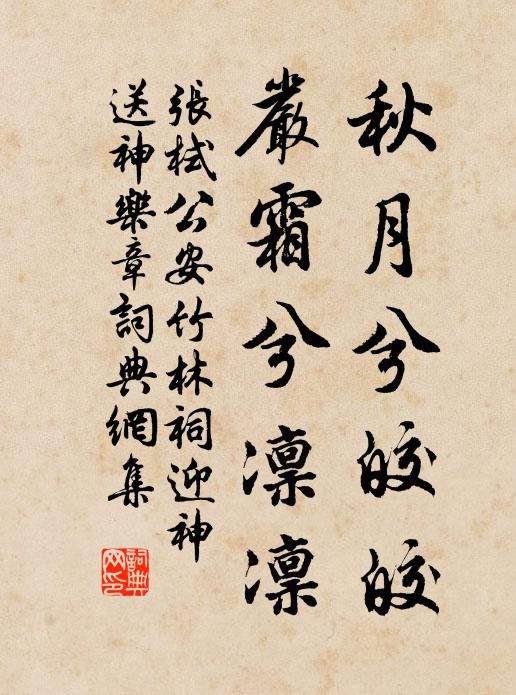 秋月兮皎皎
嚴霜兮凛凛
張栻公安竹林祠迎神
送神樂章詞典網集
詞典网印